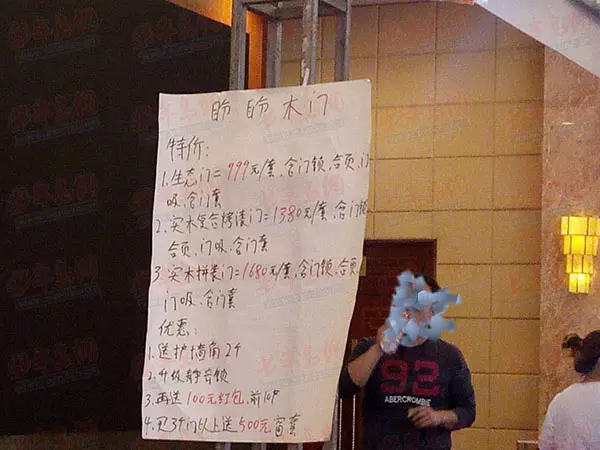 盼盼木门
特价:
1.生态门=999元/套、含门锁、合页、门
吸、含门套
2、实木复合烤漆门=1380元/套、含门锁
合页、门吸、含门套
3、实木拼装门=1680元/套、含门锁、合页、
门吸、含门套
优惠:
1.送护墙角2个
2.升级静音锁
3.再送100元红包、前10户
4.买3个门以上送500元窗套
92
ABERCROMBIE